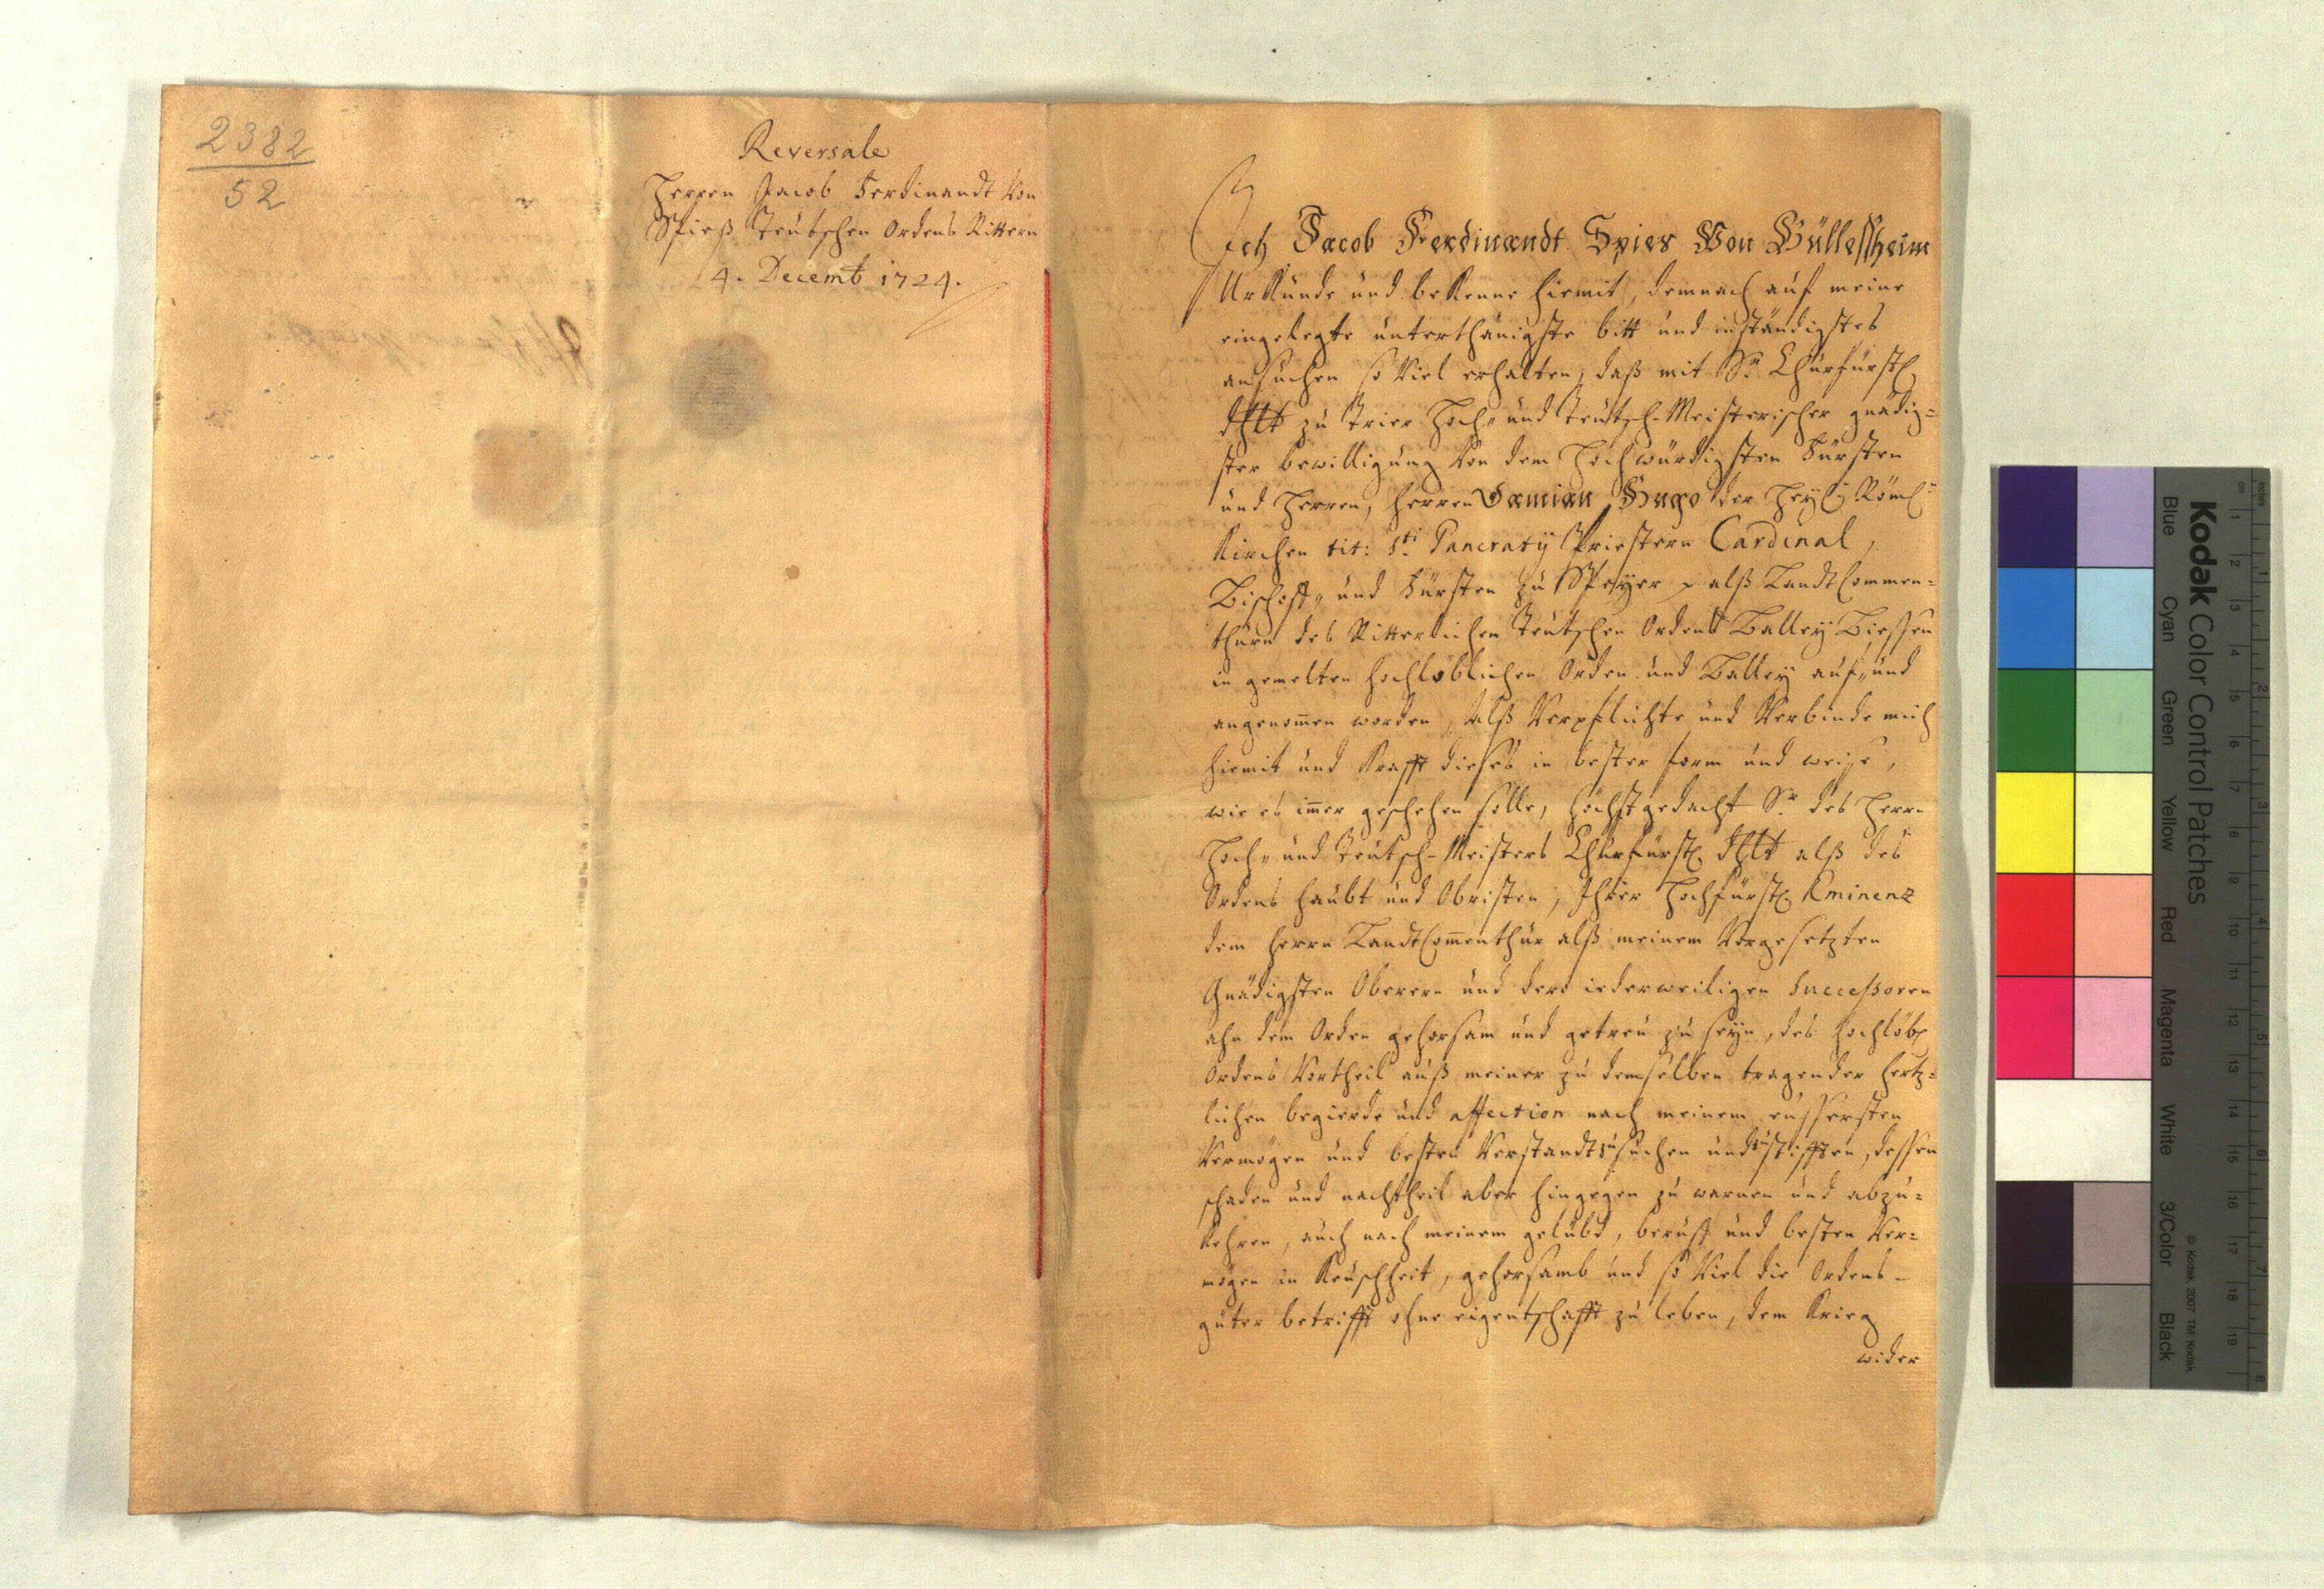 2382
52
Reversale
Herren Jacob Ferdinandt Von
Spieß Teutschen Ordens Rittern
4. Decemb 1724.
Ich Jacob Ferdinandt Spies Von Büllessheim
Urkunde und bekenne hiemit, demnach auf meine
eingelegte unterthänigste bitt und inständigstes
ansuchen so Viel erhalten, daß mit Sr. Churfürstl.
dhlt zu Trier Hoch- und Teutsch-Meisterischer gnädig=
ster bewilligung von dem Hochwürdigsten Fürsten
und Herren, Herren Damian Hugo der Heyl. Röml.
Kirchen tit: Sti Pancratÿ Priestern Cardinal,
Bischoff- und Fürsten zu Speyer alß LandtCommen=
thurn des Ritterlichen Teutschen Ordens Balley Biessen
in gemelten hochlöblichen Orden und Balley auf- und
angenom̅en worden, Alß Verpflichte und Verbinde mich
hiemit und Krafft dieses in bester form und weise,
wie es im̅er geschehen solle, höchstgedacht Sr. des Herrn
Hoch- und Teutsch-Meisters Churfürstl. dhlt alß des
Ordens haubt und Obristen, Ihrer Hochfürstl. Eminenz
dem Herrn LandtCom̅enthur alß meinem Vorgesetzten
Gnädigsten Oberern und dero iederweiligen Successoren
ahn dem Orden gehorsam und getreu zu seyn, des hochlöbl.
Ordens Vortheil auß meiner zu demselben tragender hertz=
lichen begierde und affection nach meinem eussersten
Vermögen und besten Verstandt zu suchen und zu stifften, dessen
schaden und nachtheil aber hingegen zu warnen und abzu=
kehren, auch nach meinem gelübd, beruff und besten Ver=
mögen in Keuschheit, gehorsamb und so Viel die Ordens-
güter betrifft ohne eigentschafft zu leben, dem Krieg
wider